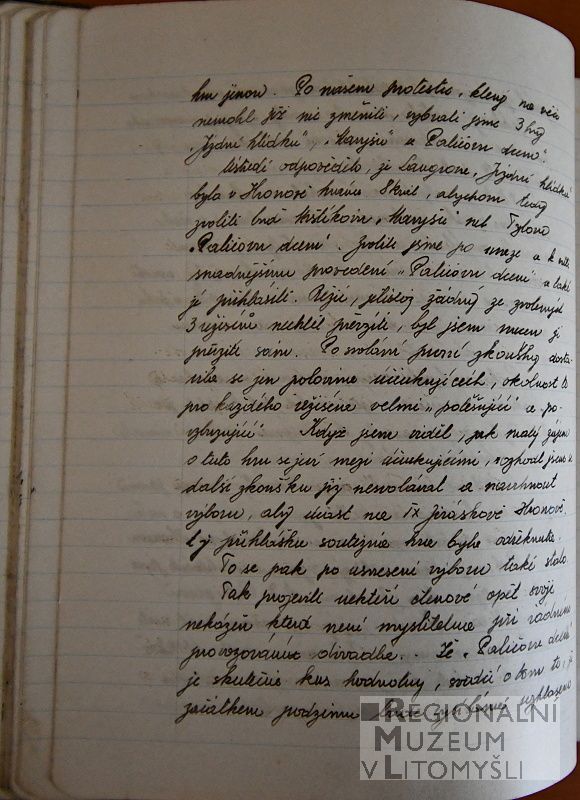 hru jinou. Po našem protestu, který na věci
nemohl již nic změniti, vybrali jsme 3 hry
„Jízdní hlídku", „Maryšu" a Paličovu dceru".
Ústředí odpovědělo, že Langrova, Jízdní hlídka
byla v Hronově hrána 8krát, abychom tedy
zvolili buď Mrštíkovu „Maryšu" neb Tylovu
„Paličovu dceru". Zvolili jsme po úvaze a k
snadnějšímu provedení „Paličovu dceru" a také
je přihlásili. Režii, žádný ze zvolených
3 režisérů nechtěl převzíti, byl jsem nucen ji
převzíti sám. Po svolání první zkoušky dosta-
vila se jen polovina účinkujících, okolnost to
pro každého režiséra velmi „potěšující" a po-
vzbuzující". Když jsem viděl, jak malý zájem
o tuto hru se jeví mezi účinkujícími, rozhodl jsem se
další zkoušku již nesvolávat a navrhnout
výboru, aby účast na IX Jiráskově Hronově
t.j. přihláška soutěžní hra byla odřeknuta.
To se pak po usnesení výboru také stalo.
Tak projevili někteří členové opět svoji
nekázeň která není myslitelna při řádném
provozování divadla. Že „Paličova dcera"
je skutečně kus hodnotný, svědčí o tom to, že
začátkem podzimu byla
REGIONÁLNÍ
MUZEUM
V LITOMYŠLI